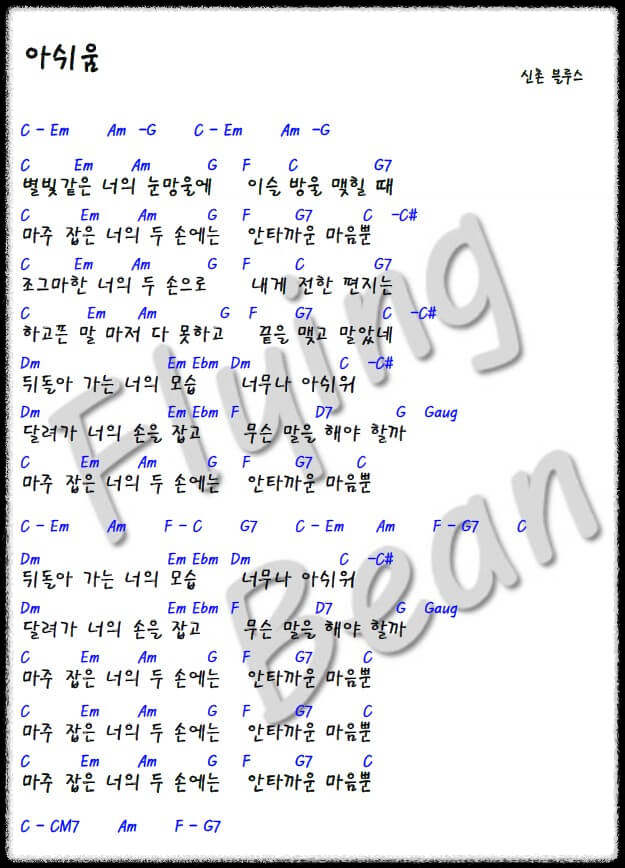 아쉬움
신촌 블루스
C - Em Am -G C - Em Am -G
C Em Am G F C G7
별빛같은 너의 눈망울에 이슬 방울 맺힐 때
C Em Am G F G7 C -C#
마주 잡은 너의 두 손에는 안타까운 마음뿐
C Em Am G F C G7
조그마한 너의 두 손으로 내게 전한 편지는
C Em Am G F G7 C -C#
하고픈 말 마저 다 못하고 끝을 맺고 말았네
Dm Em Ebm Dm C -C#
뒤돌아 가는 너의 모습 너무나 아쉬워
Dm Em Ebm F D7 G Gaug
달려가 너의 손을 잡고 무슨 말을 해야 할까
C Em Am G F G7 C
마주 잡은 너의 두 손에는 안타까운 마음뿐
C - Em Am F - C G7 C - Em Am F - G7 C
Dm Em Ebm Dm C -C#
뒤돌아 가는 너의 모습 너무나 아쉬워
Dm Em Ebm F D7 G Gaug
달려가 너의 손을 잡고 무슨 말을 해야 할까
C Em Am G F G7 C
마주 잡은 너의 두 손에는 안타까운 마음뿐
C Em Am G F G7 C
마주 잡은 너의 두 손에는 안타까운 마음뿐
C Em Am G F G7 C
마주 잡은 너의 두 손에는 안타까운 마음뿐
C - CM7 Am F - G7
Flying
Bean